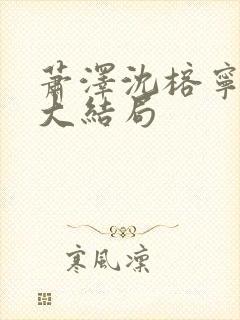 蕭澤沈榕寧
大結局
寒風凜